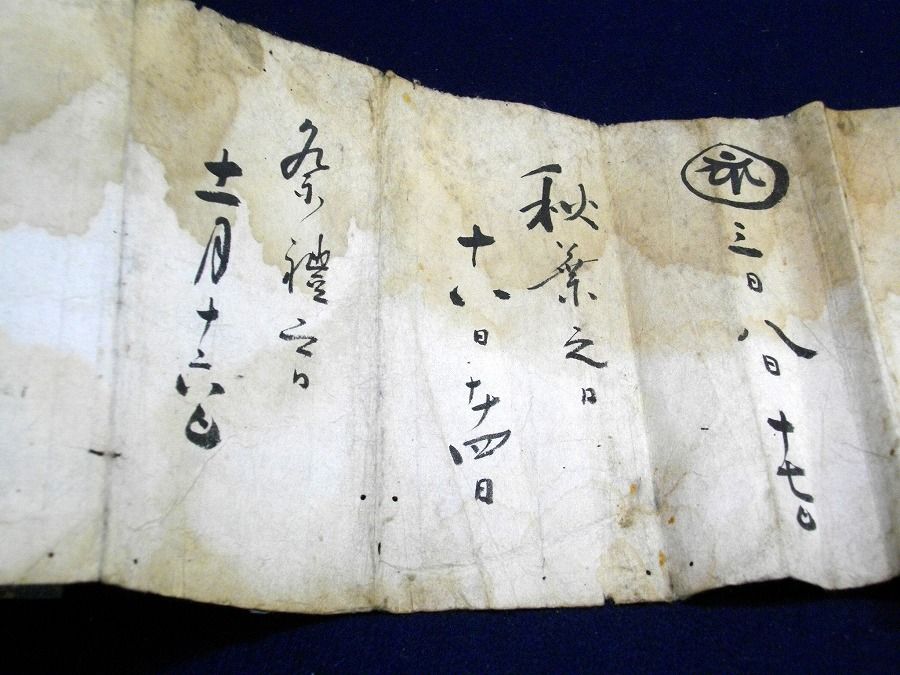 三日 八日 十七日
秋葉之日
十八日 廿四日
祭禮之日
十一月十六日